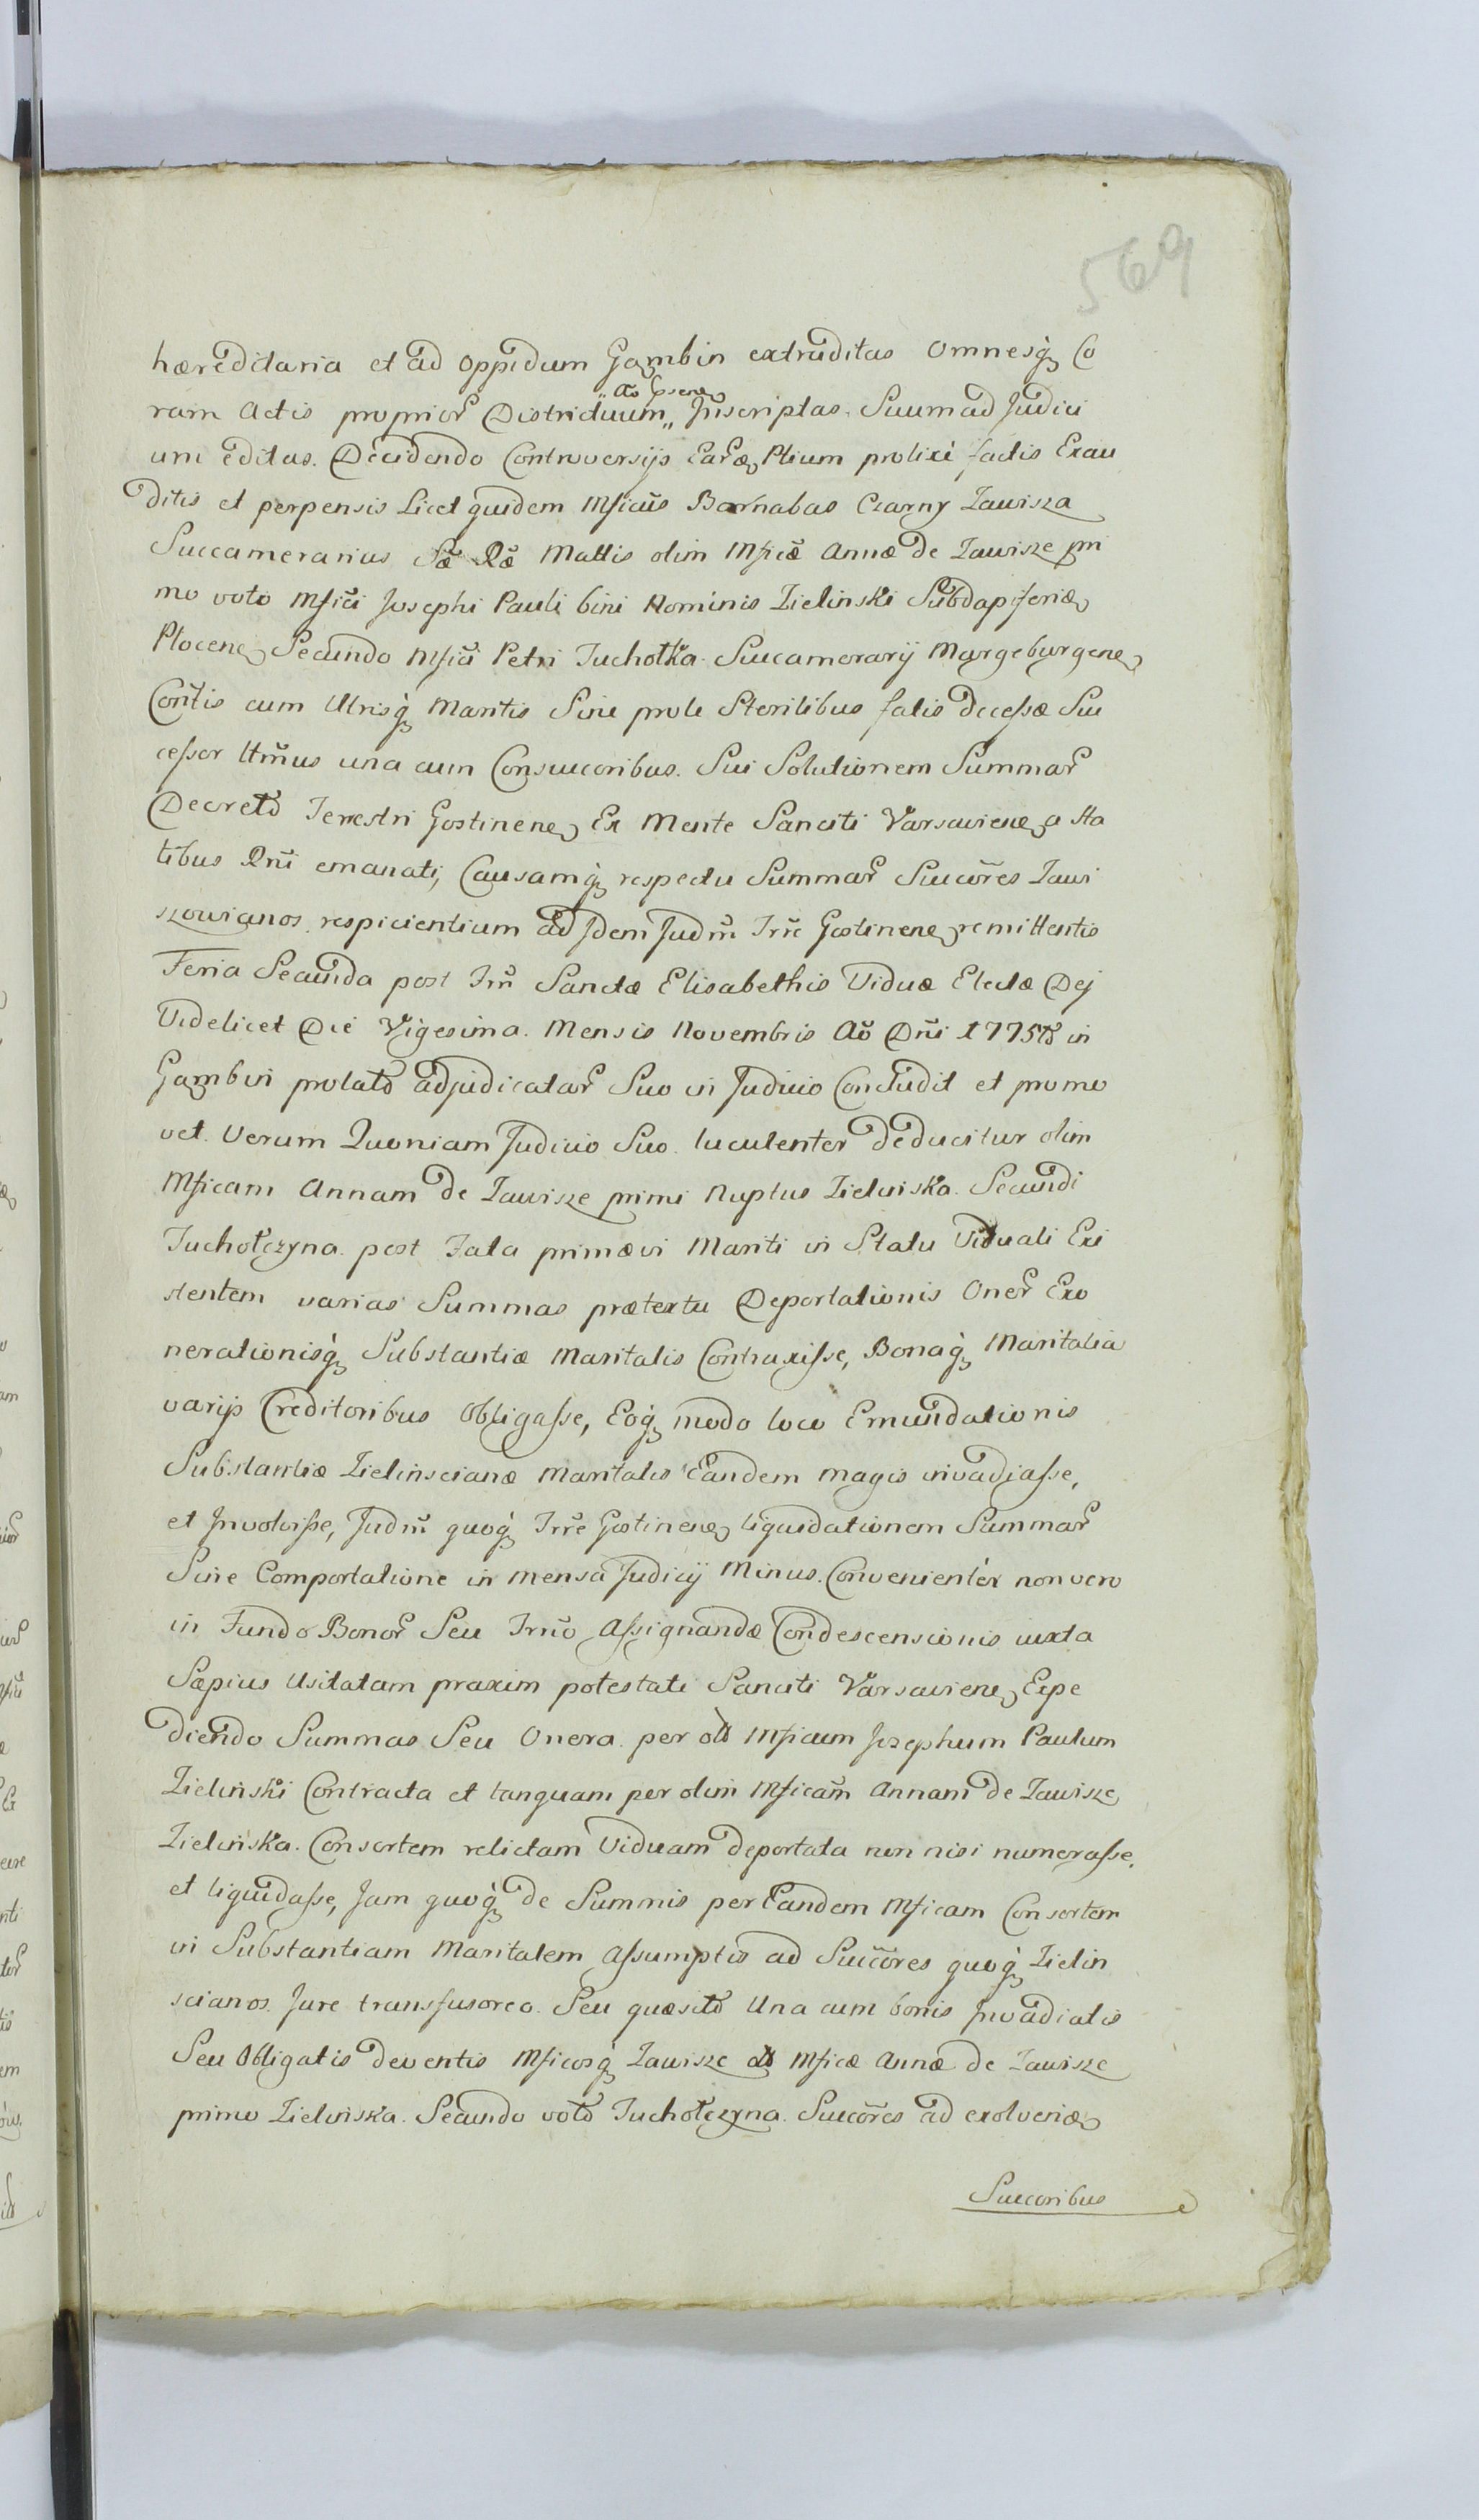 569
hæreditaria et ad oppidum Gąmbin extraditas omnesq̀ Co
ram Actis proprior Districtuum „ ac
Inscriptas. Suum ad Judici
um editas. Decidendo Controversijs Earu Ptium prolixè factis Exau
ditis et perpensis Licet quidem Mficus Barnabas Czarny Zawisza
Succamerarius Mattis olim Mficæ Annæ de Zawisze pri
mo voto Mfici Josephi Pauli bini Nominis Zielinski Subdapiferidæ
Plocene Secundo Mfici Petri Tuchołka Succamerarij Margeburgene
Contis cum Utrisq̀ Maritis Sine prole Sterilibus fatis decessæ Suc
cessor Ltm̃us una cum Consuccoribus. Sui Solutionem Summar
Decreto Terrestri Gostinene Ex Mente Sanciti Varsaviene a Sta
tibus Rni emanati, Causamq̀ respectu Summar Succores Zawi
szowianos respicientium ad Idem Judm̃ Trre Gostinene remittentis
Feria Secunda post Fm̃ Sanctæ Elisabethis Viduæ Electæ Dej
Videlicet Die Vigesima. Mensis Novembris Ao Dni 1775to in
Gąmbin prolato adjudicatar Suo in Judicio Concludit et promo
vet. Verum Quoniam Judicio Suo luculenter deducitur olim
Mficam Annam de Zawisze primi Nuptus Zielińska. Secundi
Tuchołczyna post Fata primævi Mariti in Statu Viduali Exi
stentem varias Summas prætextu Deportationis Oner Exo
nerationisq̀ Substantiæ Maritalis Contraxisse, Bonaq̀ Maritalia
varijs Creditoribus Obligasse, Eoq̀ modo loco Emundationis
Substantiæ Zielinscianæ Maritalis Eandem magis invadiasse,
et Involvisse, Judm̃ quoq̀ Trre Gostinene liquidationem Summar
Sine Comportatione in Mensa Judicij Minus. Convenientèr non vero
in Fundo Bonor Seu Trno Assignandæ Condescensionis iuxta
Sæpius Usitatam praxim potestate Sanciti Varsaviene Expe
diendo Summas Seu Onera per olim Mficum Josephum Paulum
Zieliński Contracta et tanquam per olim Mficam Annam de Zawisze
Zielińska. Consortem relictam Viduam deportata non nisi numerasse,
et liquidasse, Jam quoq̀ de Summis per Eandem Mficam Consortem
in Substantiam Maritalem Assumptis ad Succores quoq̀ Zielin
scianos. Jure transfusoreo. Seu quæsito Una cum bonis Invadiatis
Seu Obligatis deventis Mficosq̀ Zawisze olim Mficæ Annæ de Zawisze
primo Zielińska. Secundo voto Tuchołczyna. Succores ad exolvenda
Succoribus